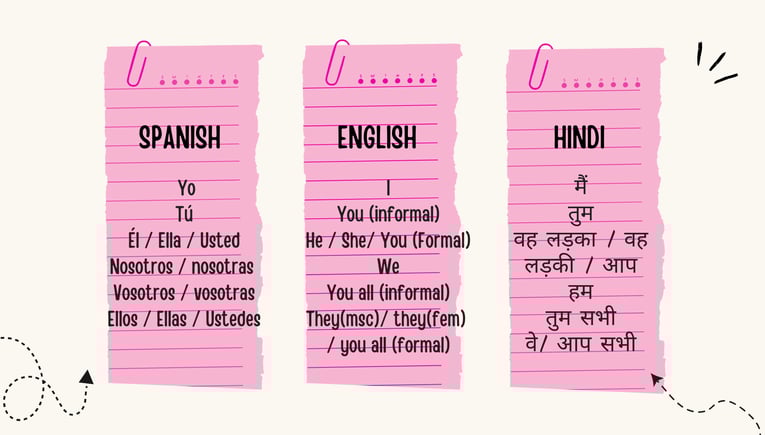 S M T W T F S
SPANISH
Yo
Tú
Él / Ella / Usted
Nosotros / nosotras
Vosotros / vosotras
Ellos / Ellas / Ustedes
S M T W T F S
ENGLISH
I
You (informal)
He / She/ You (Formal)
We
You all (informal)
They(msc)/ they(fem)
/ you all (formal)
S M T W T F S
HINDI
मैं
तुम
वह लड़का / वह
लड़की / आप
हम
तुम सभी
वे/ आप सभी